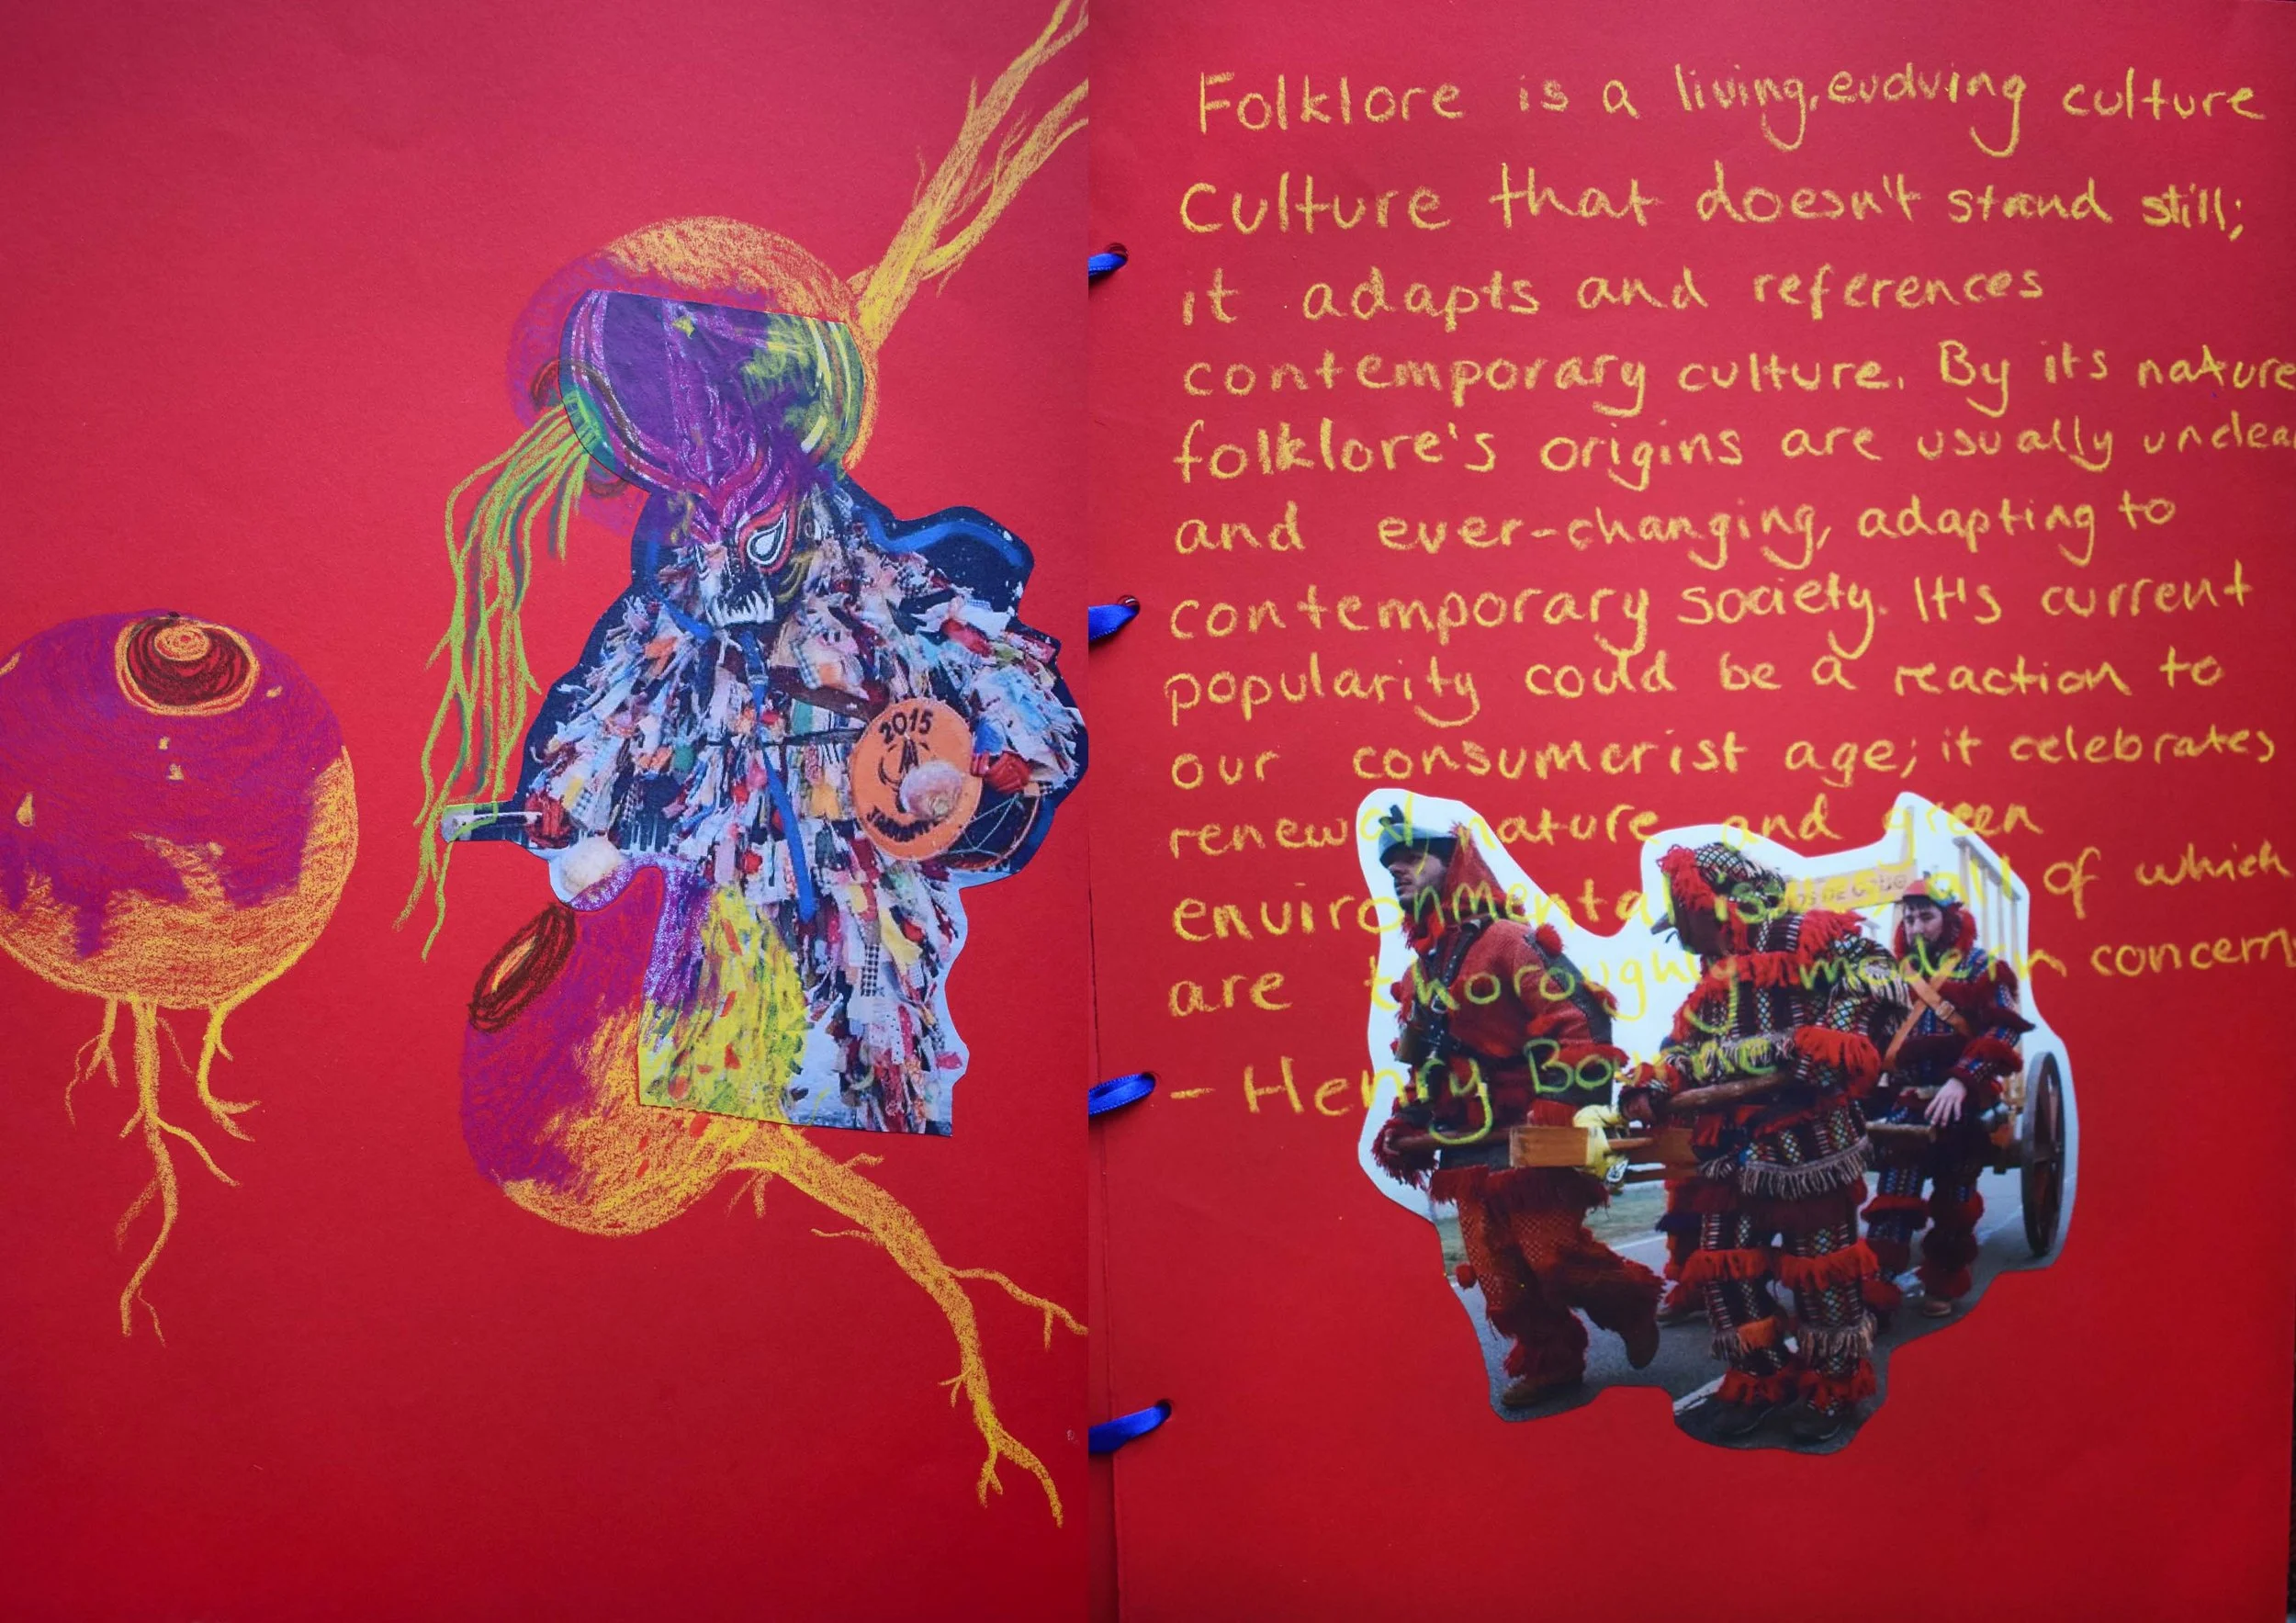 2015
Folklore is a living, evolving culture
culture that doesn't stand still;
it adapts and references
contemporary culture. By its nature
folklore's origins are usually unclea
and ever-changing, adapting to
contemporary society. It's current
popularity could be a reaction to
our consumerist age; it celebrates
renewal, nature and green
environmental issues, all of which
are thoroughly modern concern
- Henry Bourne